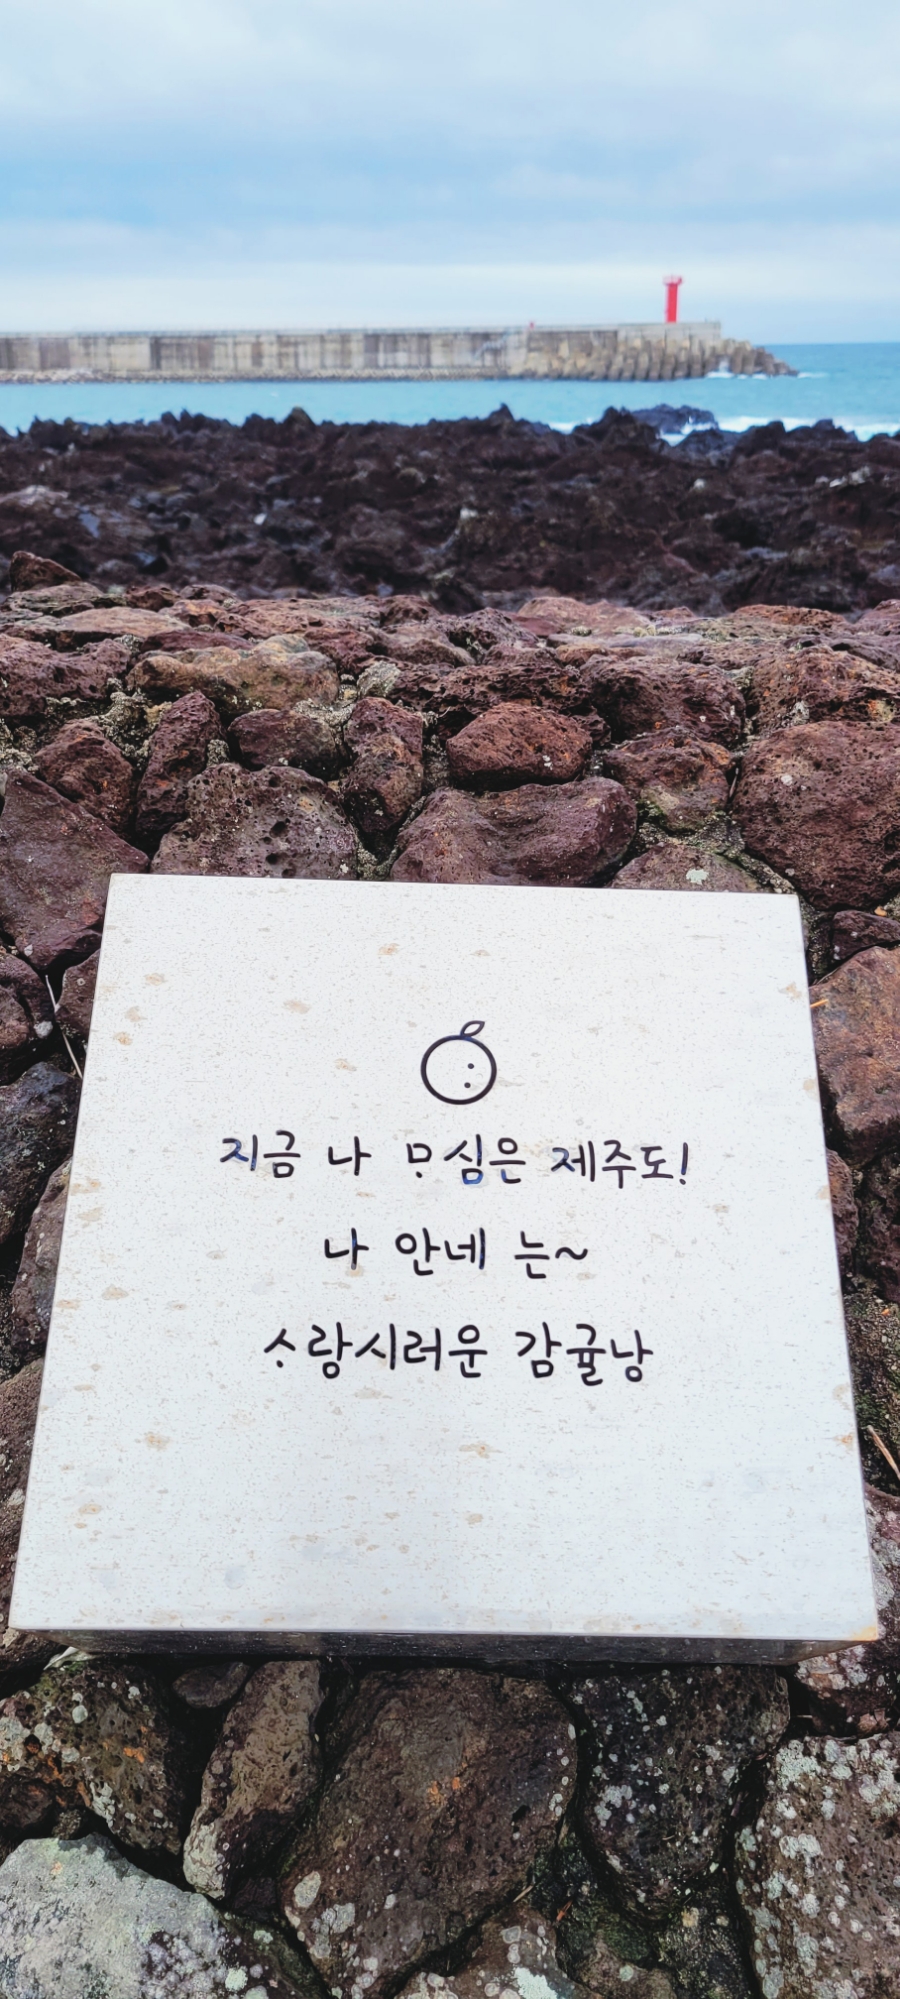 지금 나 ᄆᆞ심은 제주도!
나 안네 는~
ᄉᆞ랑시러운 감귤낭